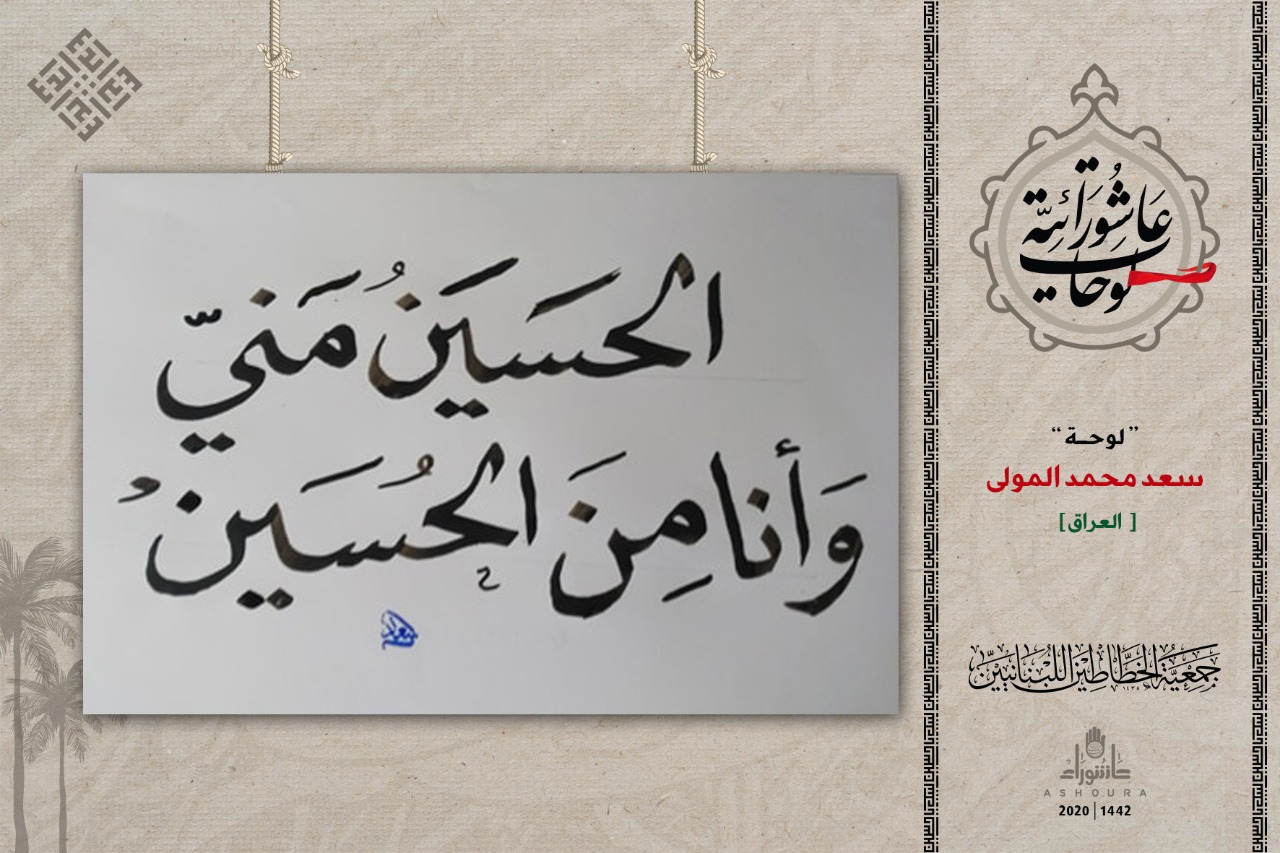 الحسَينُ مَنيّ
وَأنا مِنَ الحُسَينُ
عَاشُورَائِيَّة
لوحات
”لوحـة“
سعد محمد المولى
[ العراق]
جَمعِيَّة الخَطَّاطِين اللبْنَانِيِّين
١٤٣٨
عاشوراء
ASHOURA
2020 | 1442